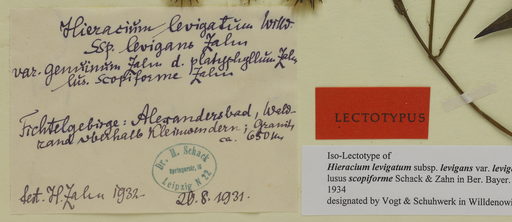 Hieracium levigatum Willd.
ssp. levigans Zahn
var. genuinum Zahn d. platyphyllum Zahn
lus. scopiforme Zahn
Fichtelgebirge: Alexandersbad, Wald-
rand oberhalb Kleinwendern; Granit,
ca. 650 m
Dr. H. Schack
Leipzig N 22
det. H. Zahn 1932
20.8.1931.
LECTOTYPUS
Iso-Lectotype of
Hieracium levigatum subsp. levigans var. levig
lusus scopiforme Schack & Zahn in Ber. Bayer.
1934
designated by Vogt & Schuhwerk in Willdenowi